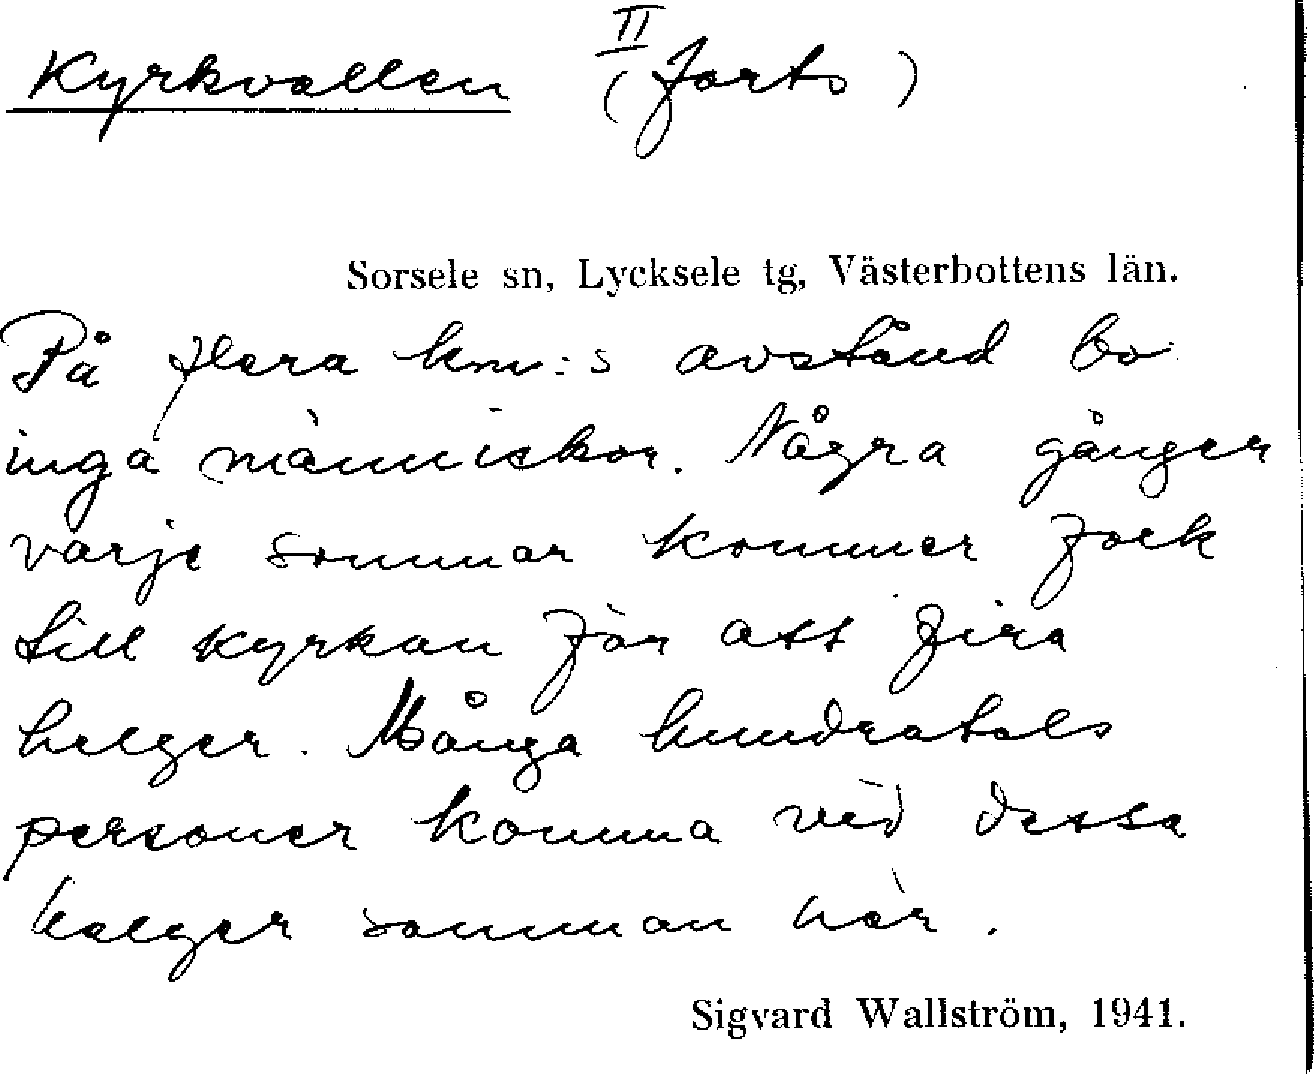 Kyrkvallen II (forts)
Sorsele sn, Lycksele tg, Västerbottens län.
På flera km:s avstånd bo
inga människor. Några gånger
varje sommar kommer folk
till kyrkan för att fira
helger. Många hundratals
personer komma vid dessa
helger samman här.
Sigvard Wallström, 1941.